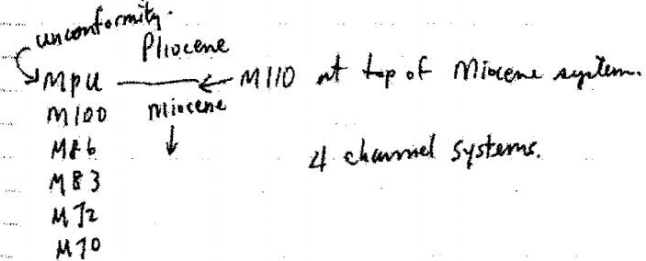 unconformity.
Pliocene
MPU M110 at top of Miocene system.
M100 Miocene
M86
M83 4 channel systems.
M72
M70